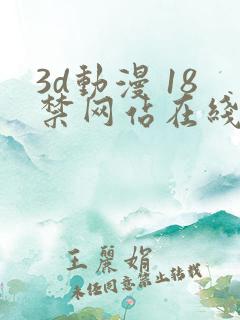 3d動漫 18
禁网佔在綫
王麗娟
未任同意禁止转载